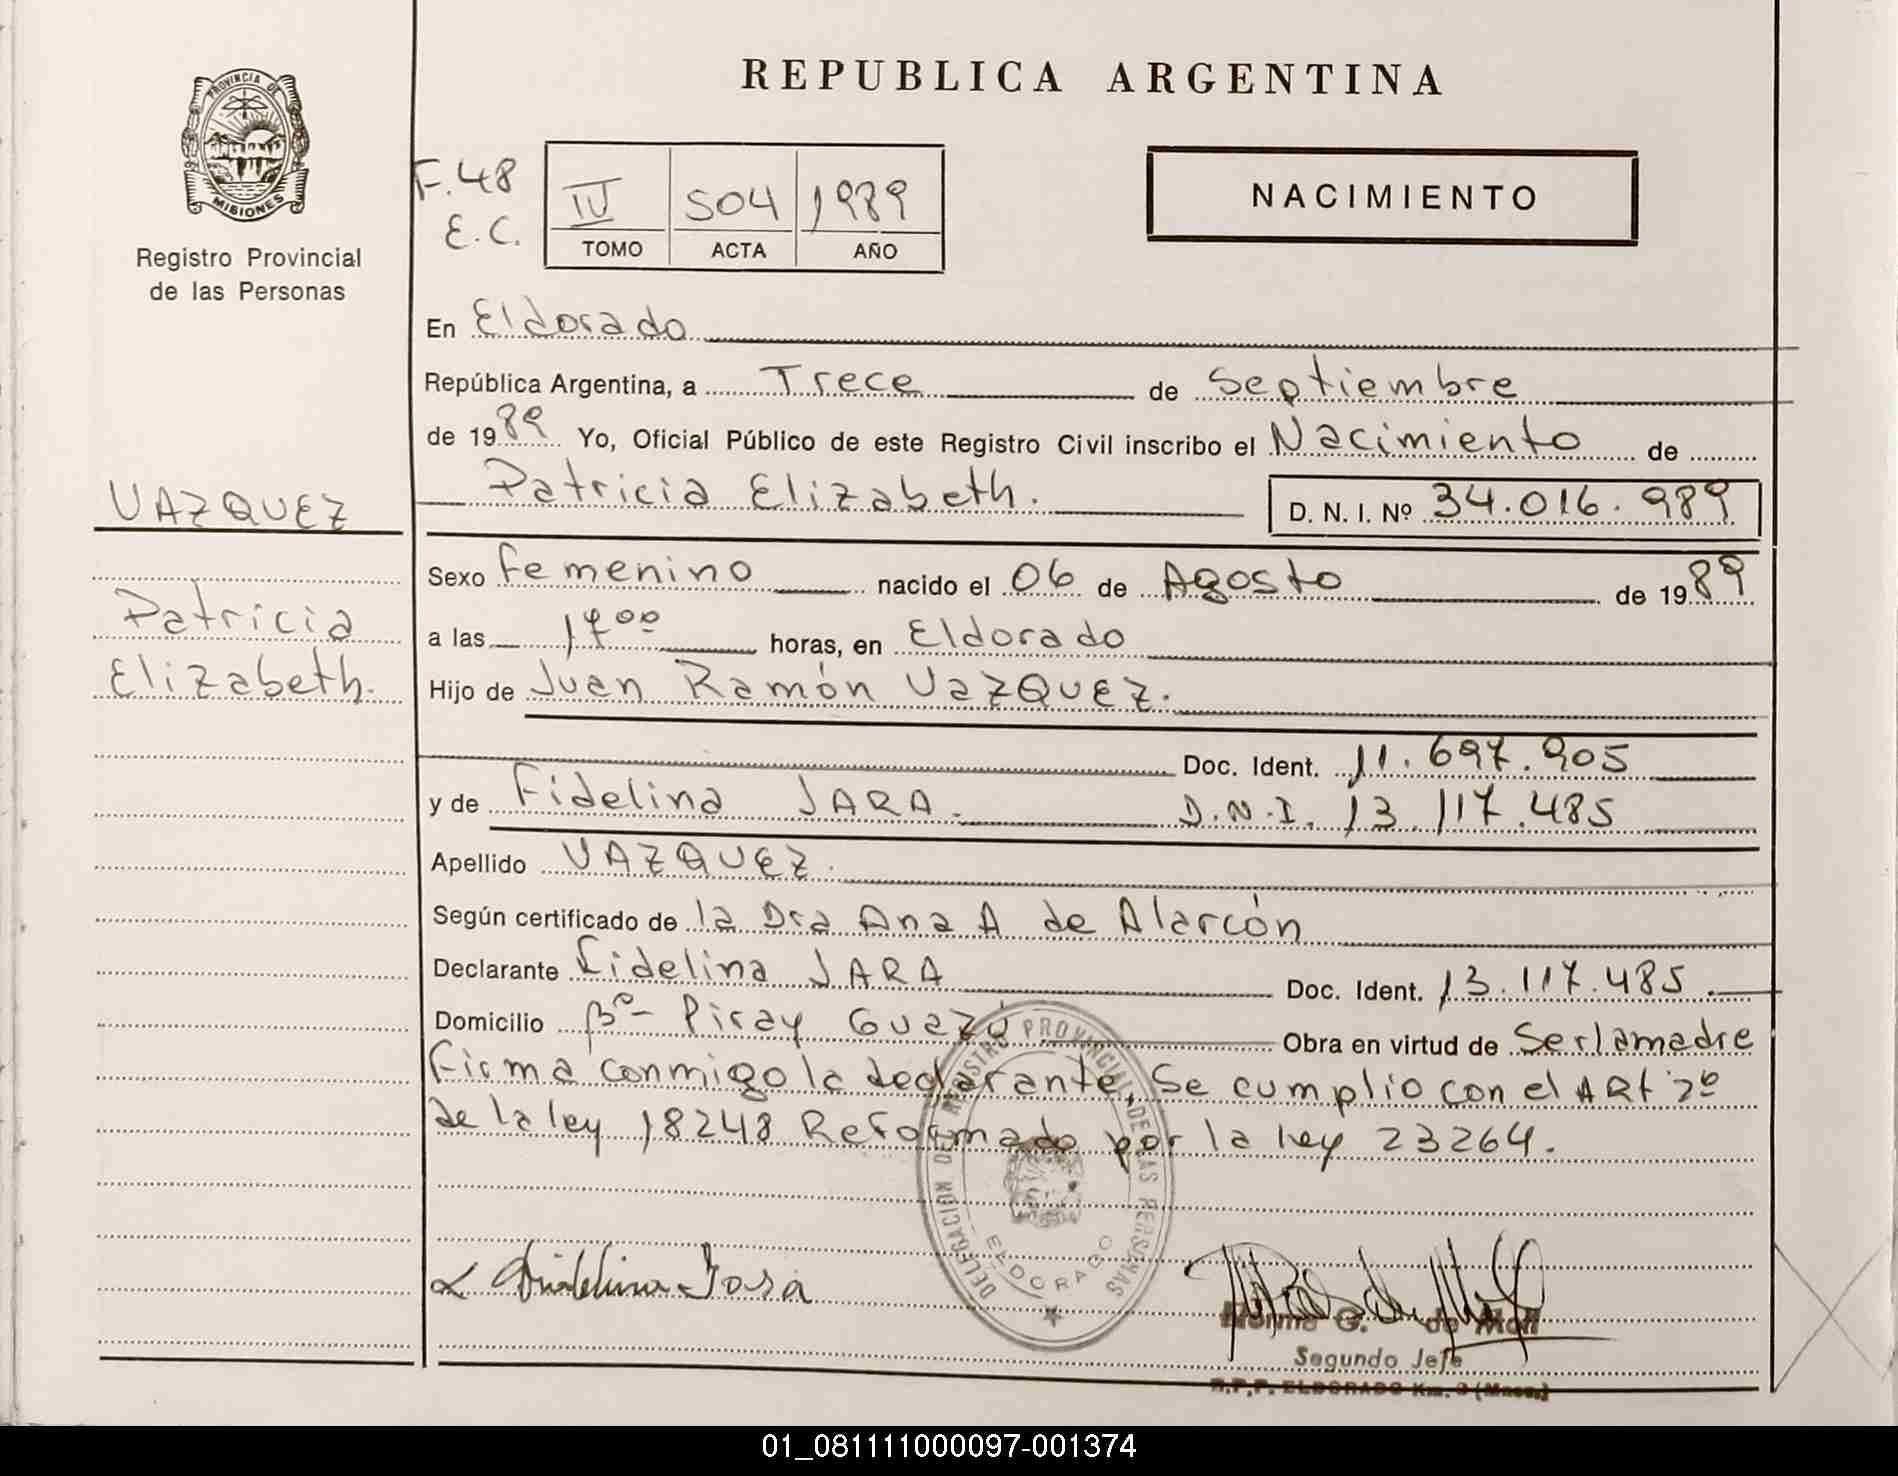 REPUBLICA ARGENTINA
PROVINCIA DE
MISIONES
Registro Provincial
de las Personas
F.48
E.C.
IV 504 1989
TOMO ACTA AÑO
NACIMIENTO
En Eldorado
República Argentina, a Trece de Septiembre
de 1989 Yo, Oficial Público de este Registro Civil inscribo el Nacimiento de
Patricia Elizabeth. D. N. I. Nº 34.016.989
VAZQUEZ
Patricia
Elizabeth.
Sexo femenino nacido el 06 de Agosto de 1989
a las 17 00 horas, en Eldorado
Hijo de Juan Ramón VazQUEZ.
Doc. Ident. 11.697.905
y de Fidelina JARA. D.N.I. 13.117.485
Apellido VAZQUEZ.
Según certificado de la Dra Ana A de Alarcón
Declarante Fidelina JARA Doc. Ident. 13.117.485.
Domicilio Bº- Piray Guazú Obra en virtud de Ser la madre
Firma conmigo la declarante, Se cumplio con el ARt 2º
de la ley 18248 Reformado por la ley 23264.
DELEGACION DEL REGISTRO PROVINCIAL DE LAS PERSONAS
ELDORADO
Norma G. de Moll
Segundo Jefe
R.P.P. ELDORADO Km. 9 (Mnes.)
01_081111000097-001374